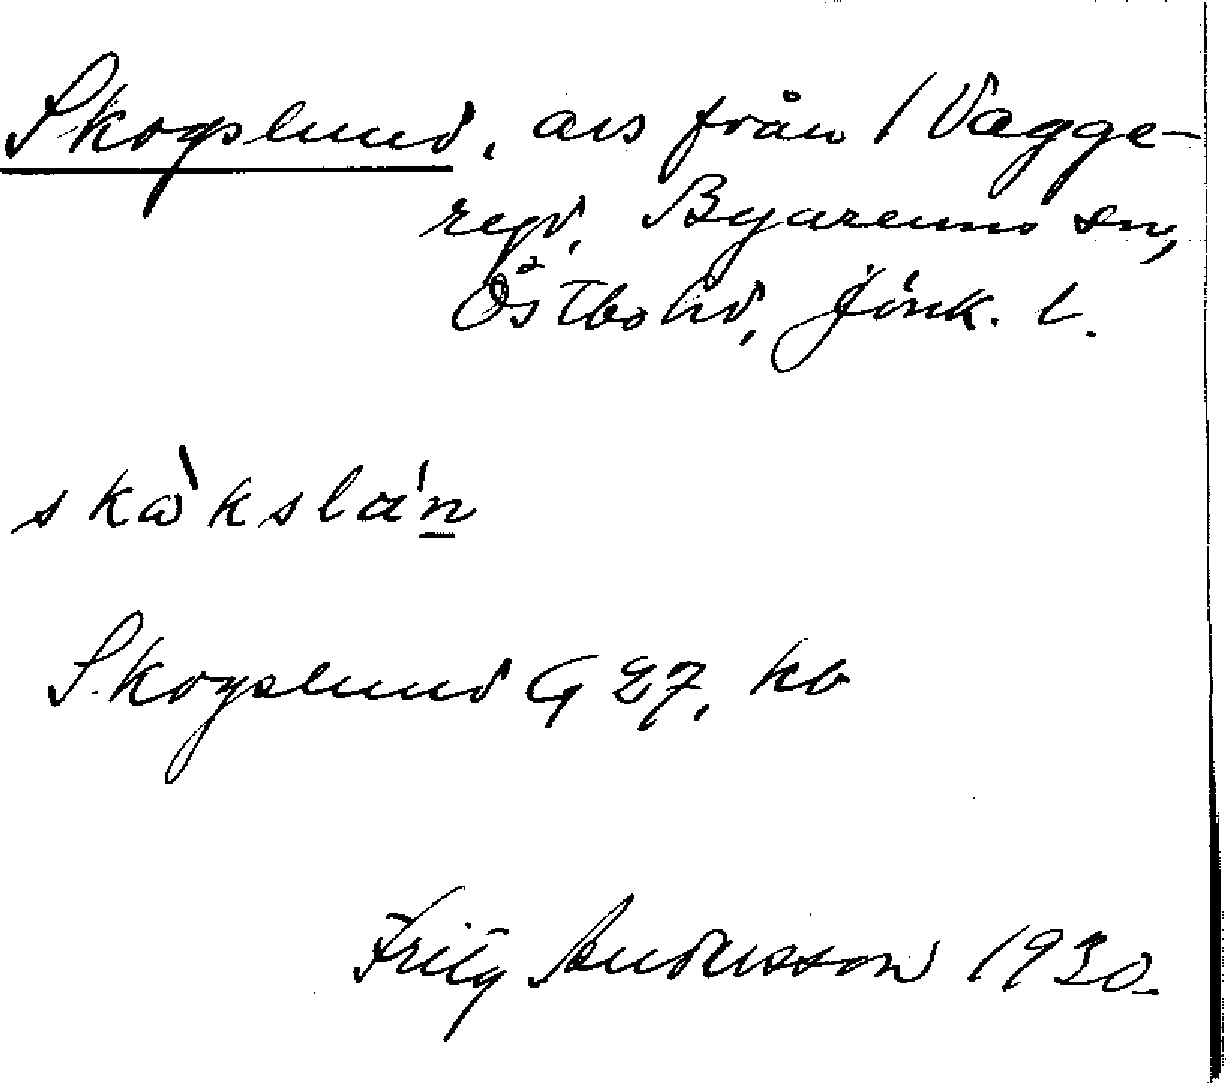 Skogslund, avs från 1 Vagge-
ryd, Byarums sn,
Östbo hd, Jönk. l.
skɷ̀kslán̲
Skogslund G 27, kb
Fritz Andersson 1930.